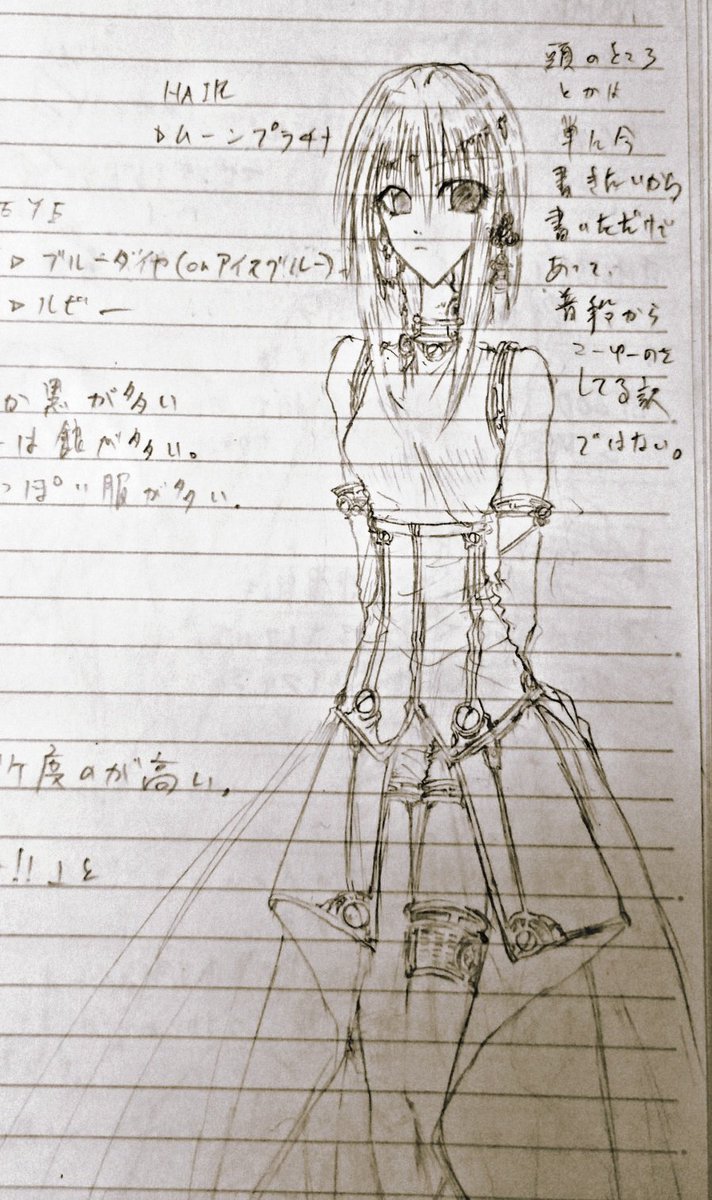 HAIR
▷ムーンプラチナ
EYE
▷ブルーダイヤ(orアイスブルー)
▷ルビー
か黒が多い
ーは銀が多い。
っぽい服が多い。
ケ度のが高い。
!!」と
頭のところ
とかは
単に今
書きたいから
書いただけで
あって、
普段から
こーゆーのを
してる訳
ではない。